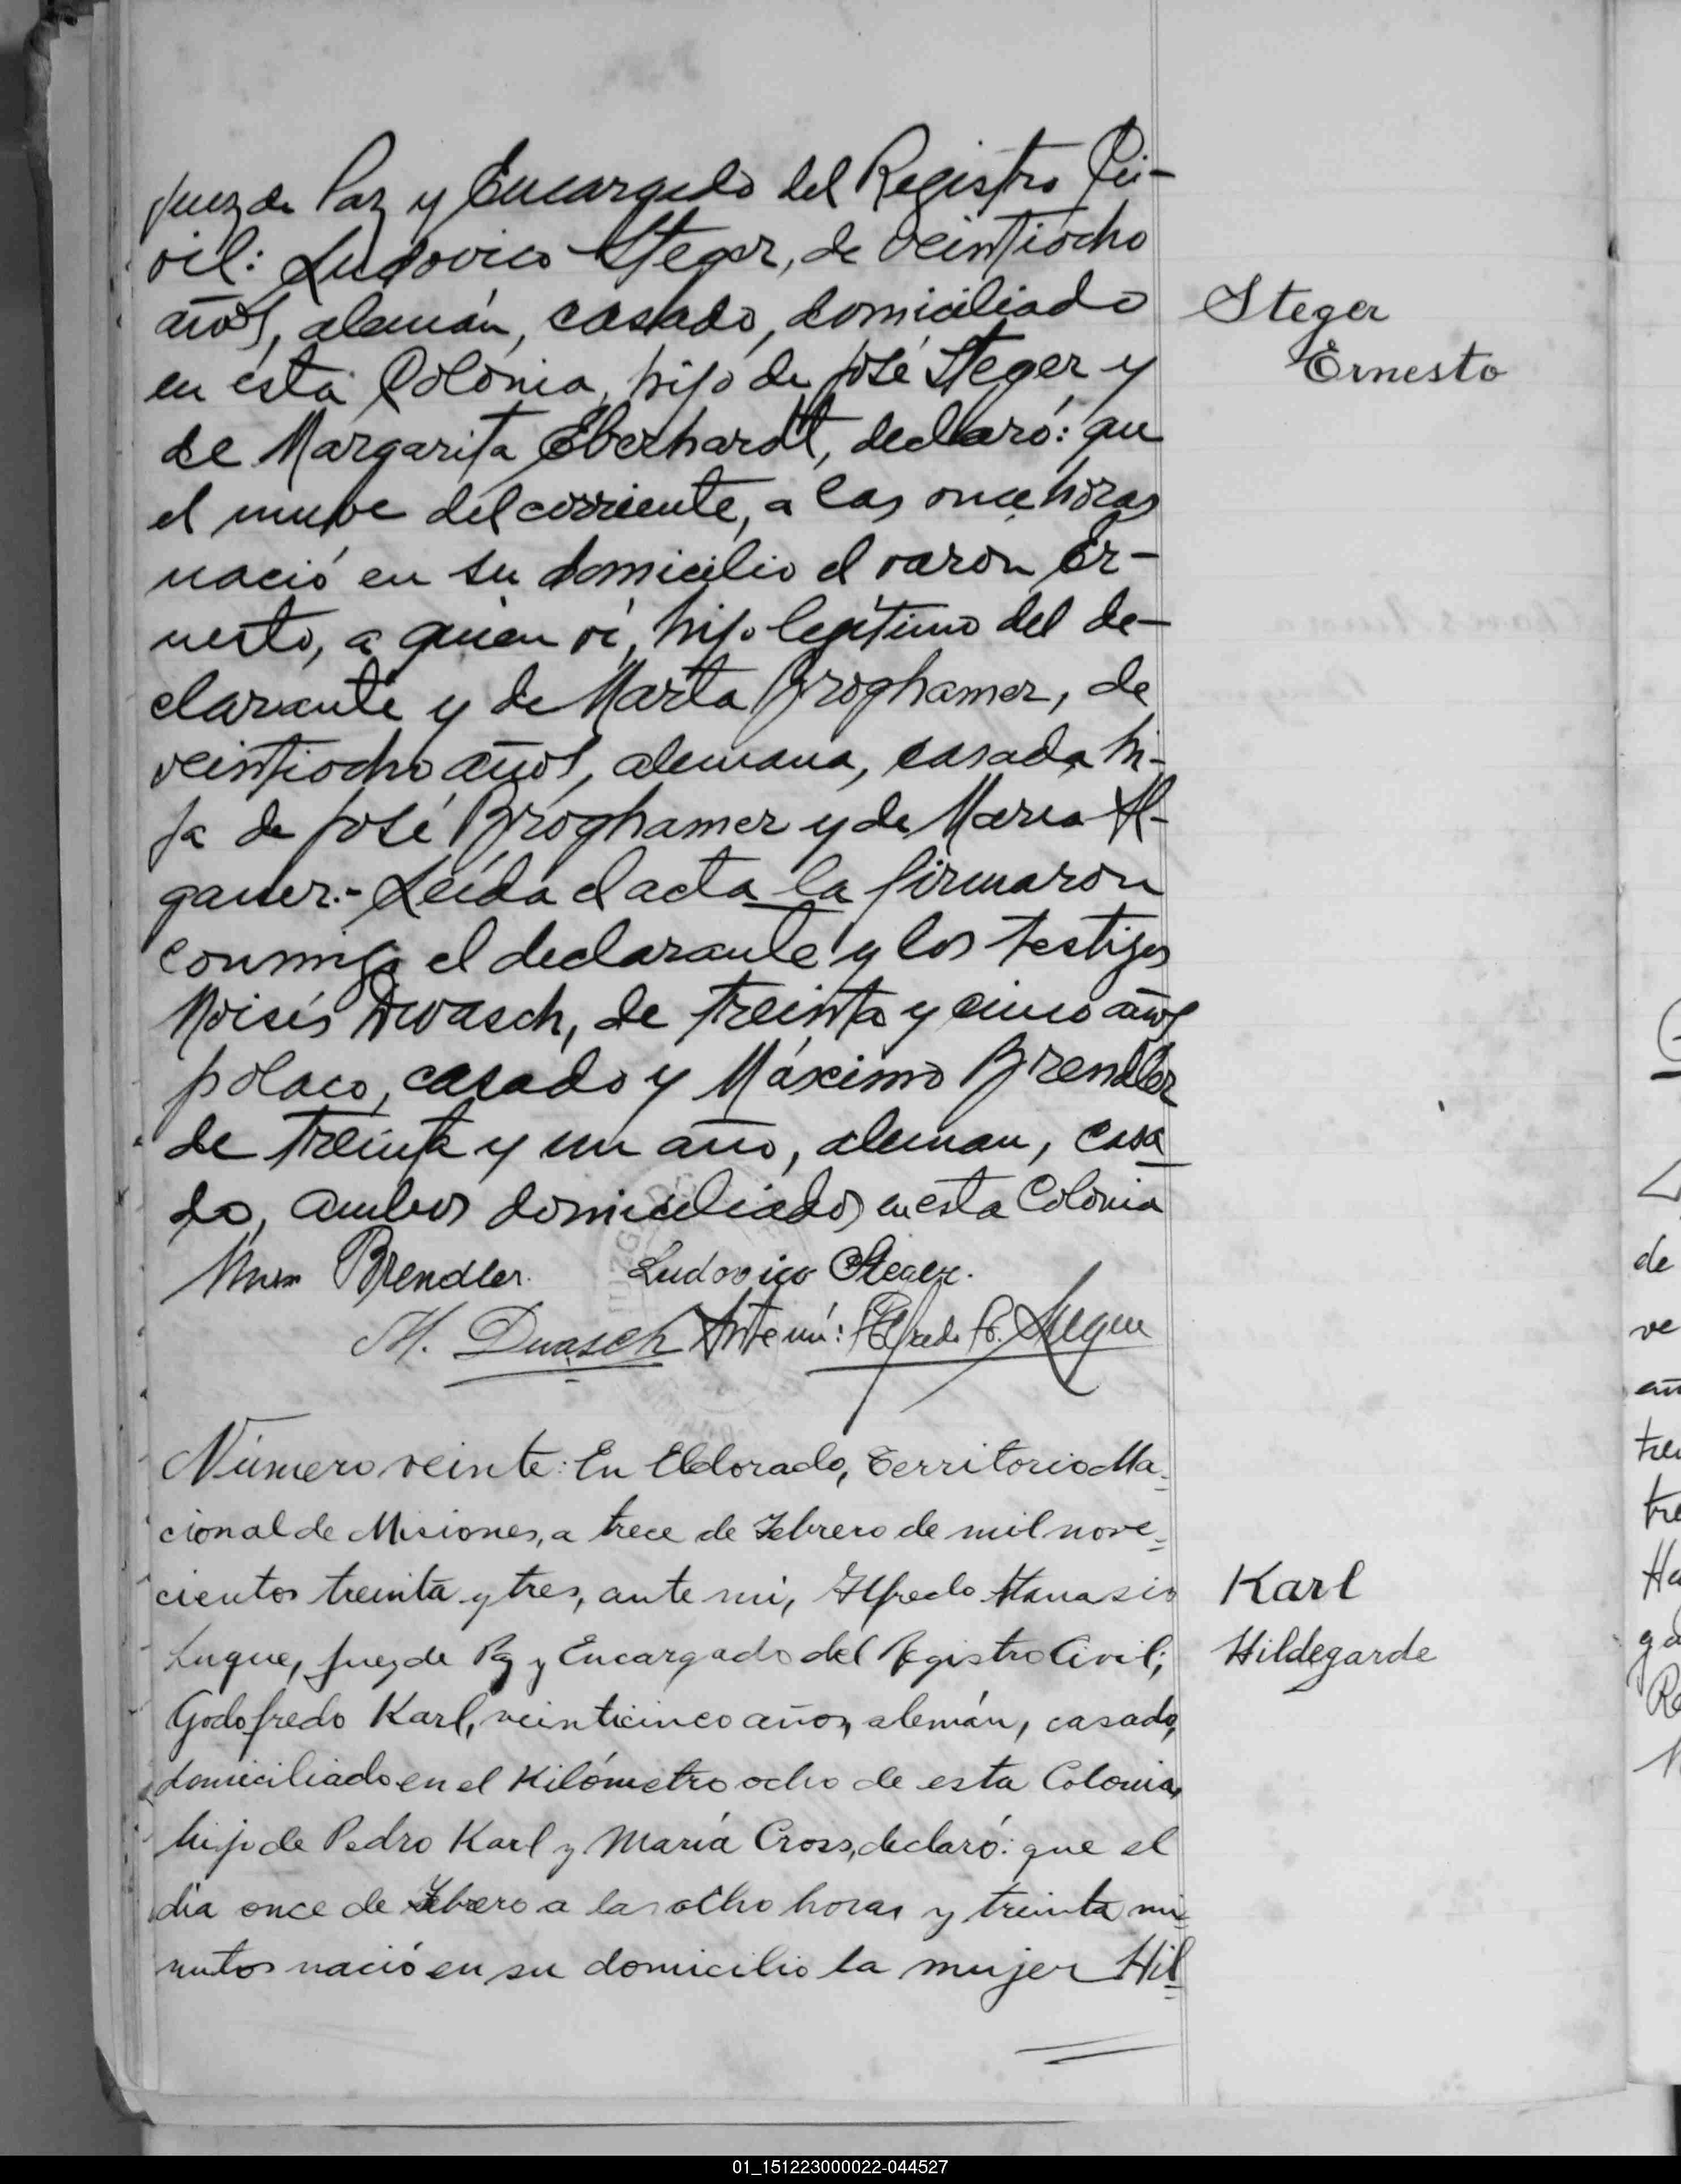 Juez de Paz y Encargado del Registro Ci-
vil: Ludovico Steger, de veintiocho
años, alemán, casado, domiciliado
en esta Colonia, hijo de José Steger y
de Margarita Eberhardt, declaró: que
el nueve del corriente, a las once horas
nació en su domicilio el varon Er-
nesto, a quien ví, hijo legítimo del de-
clarante y de Marta Broghamer, de
veintiocho años, alemana, casada, hi-
ja de José Broghamer y de Maria Al-
gauer.- Leída el acta la firmaron
conmigo el declarante y los testigos
Moisés Dwasch, de treinta y cinco años
polaco, casado y Máximo Brendler
de treinta y un año, aleman, casa
do, ambos domiciliados en esta Colonia
Max Brendler. Ludovico Steger.
M. Dwasch Ante mí: Alfredo A. Luque
Steger
Ernesto
Número veinte: En Eldorado, Territorio Na=
cional de Misiones, a trece de Febrero de mil nove=
cientos treinta y tres, ante mi, Alfredo Atanasio
Luque, Juez de Paz y Encargado del Registro Civil;
Godofredo Karl, veinticinco años, alemán, casado,
domiciliado en el Kilómetro ocho de esta Colonia,
hijo de Pedro Karl y María Cross, declaró: que el
día once de Febrero a las ocho horas y treinta mi=
nutos nació en su domicilio la mujer Hil=
Karl
Hildegarde
de
ve
Ha
01_151223000022-044527